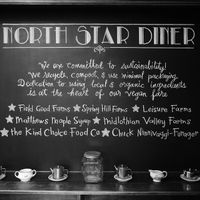 NORTH STAR DINER
We are committed to sustainability!
We recycle, compost, & use minimal packaging.
Dedication to using local & organic ingredients
is at the heart of our vegan fare
★ Field Good Farms ★ Spring Hill Farms ★ Leisure Farms
★ Matthews Maple Syrup ★ Midlothian Valley Farms
★ the Kind Choice Food Co ★ Chuck